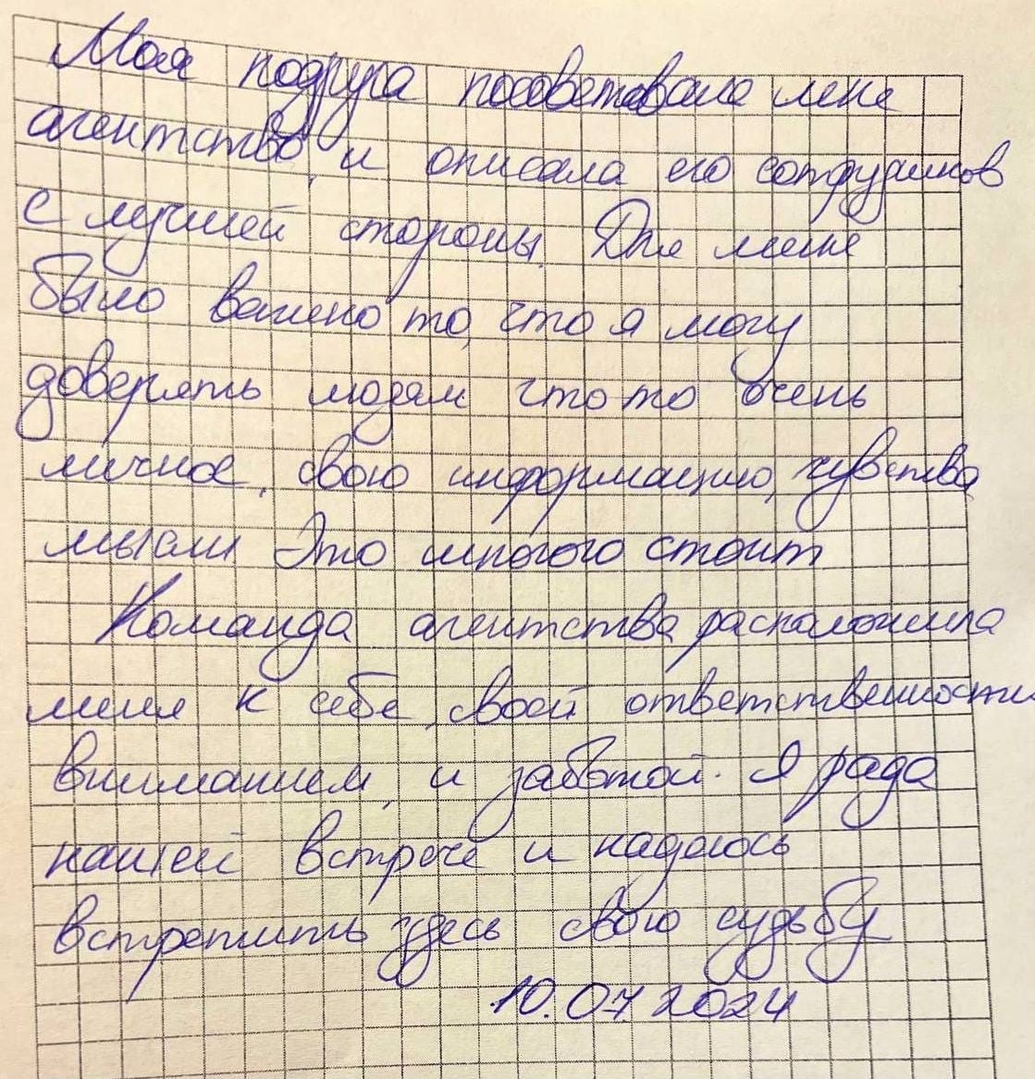 Моя подруга посоветовала мне
агентство, и описала его сотрудников
с лучшей стороны. Для меня
было важено то, что я могу
доверять людям что то очень
личное, свою информацию, чувства,
мысли Это многого стоит
Команда агентства расположила
меня к себе, своей ответственностью
вниманием, и заботой. Я рада
нашей встрече и надеюсь
встретить здесь свою судьбу
10.07.2024